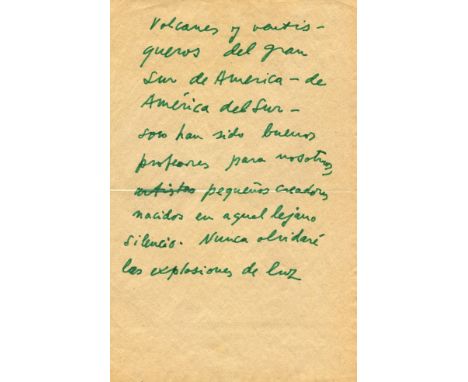 Volcanes y ventis-
queros del gran
Sur de America - de
América del Sur -
son han sido buenos
profesores para nosotros,
artistas pequeños creadores
nacidos en aquel lejano
silencio. Nunca olvidaré
las explosiones de luz